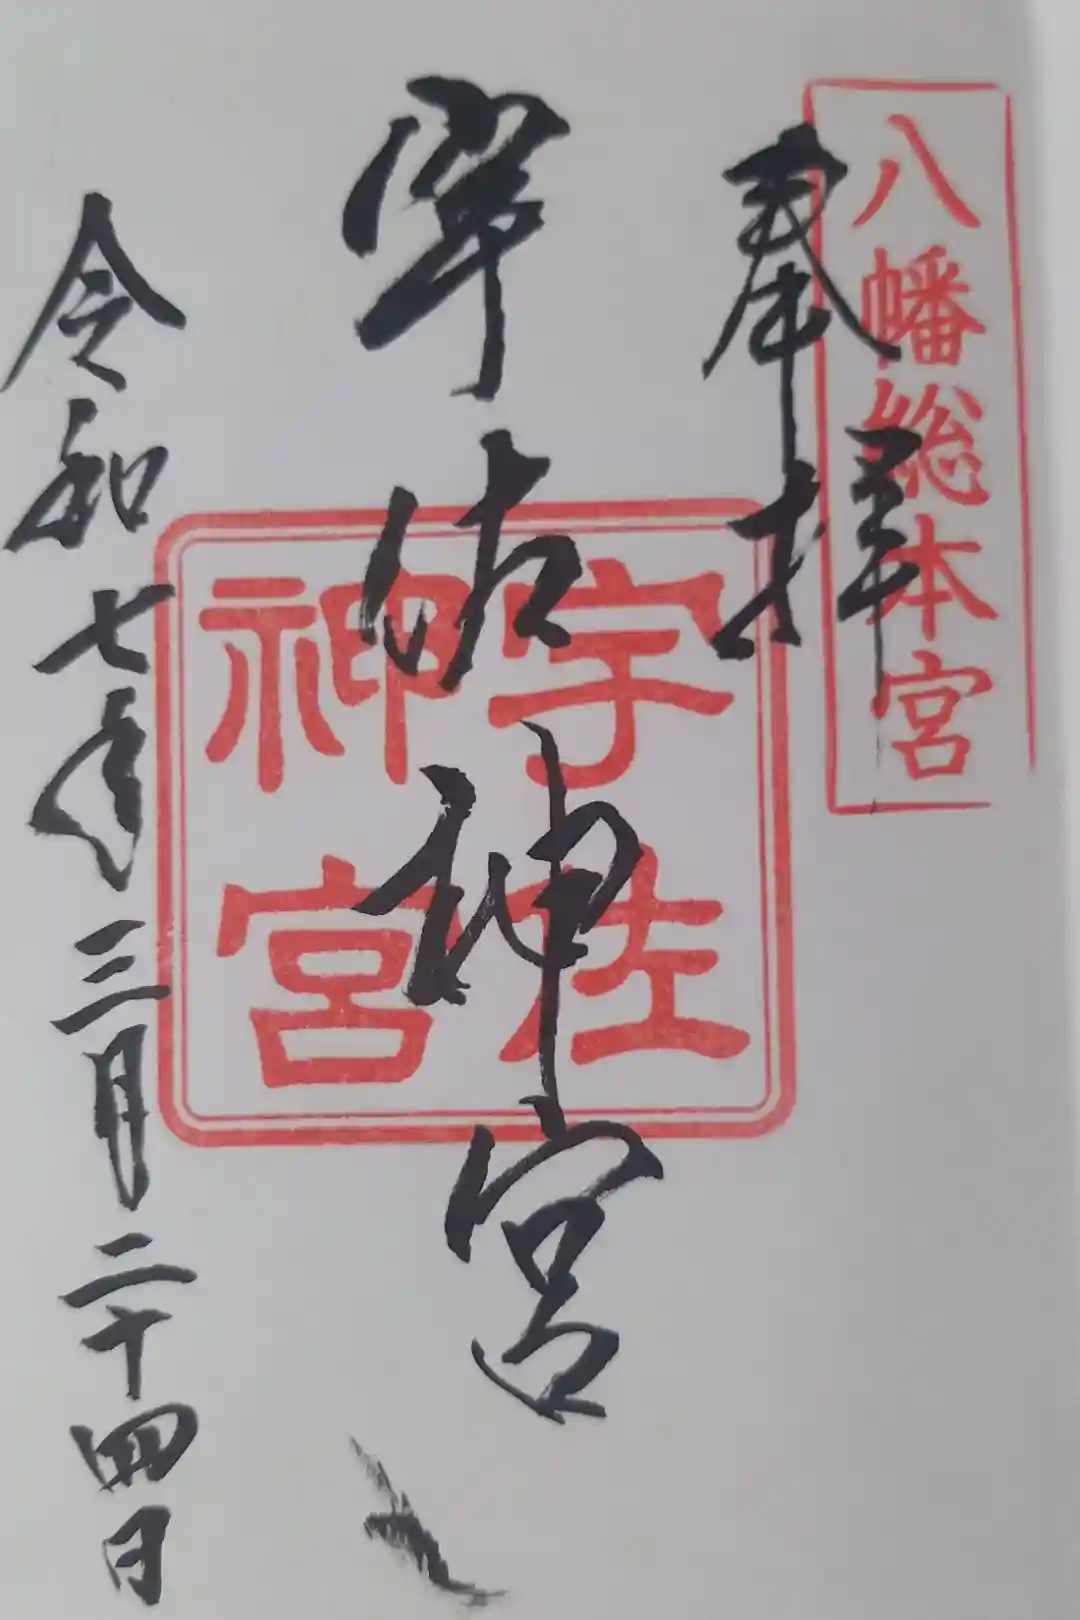 八幡総本宮
奉拝
宇佐神宮
宇佐神宮
令和七年三月二十四日